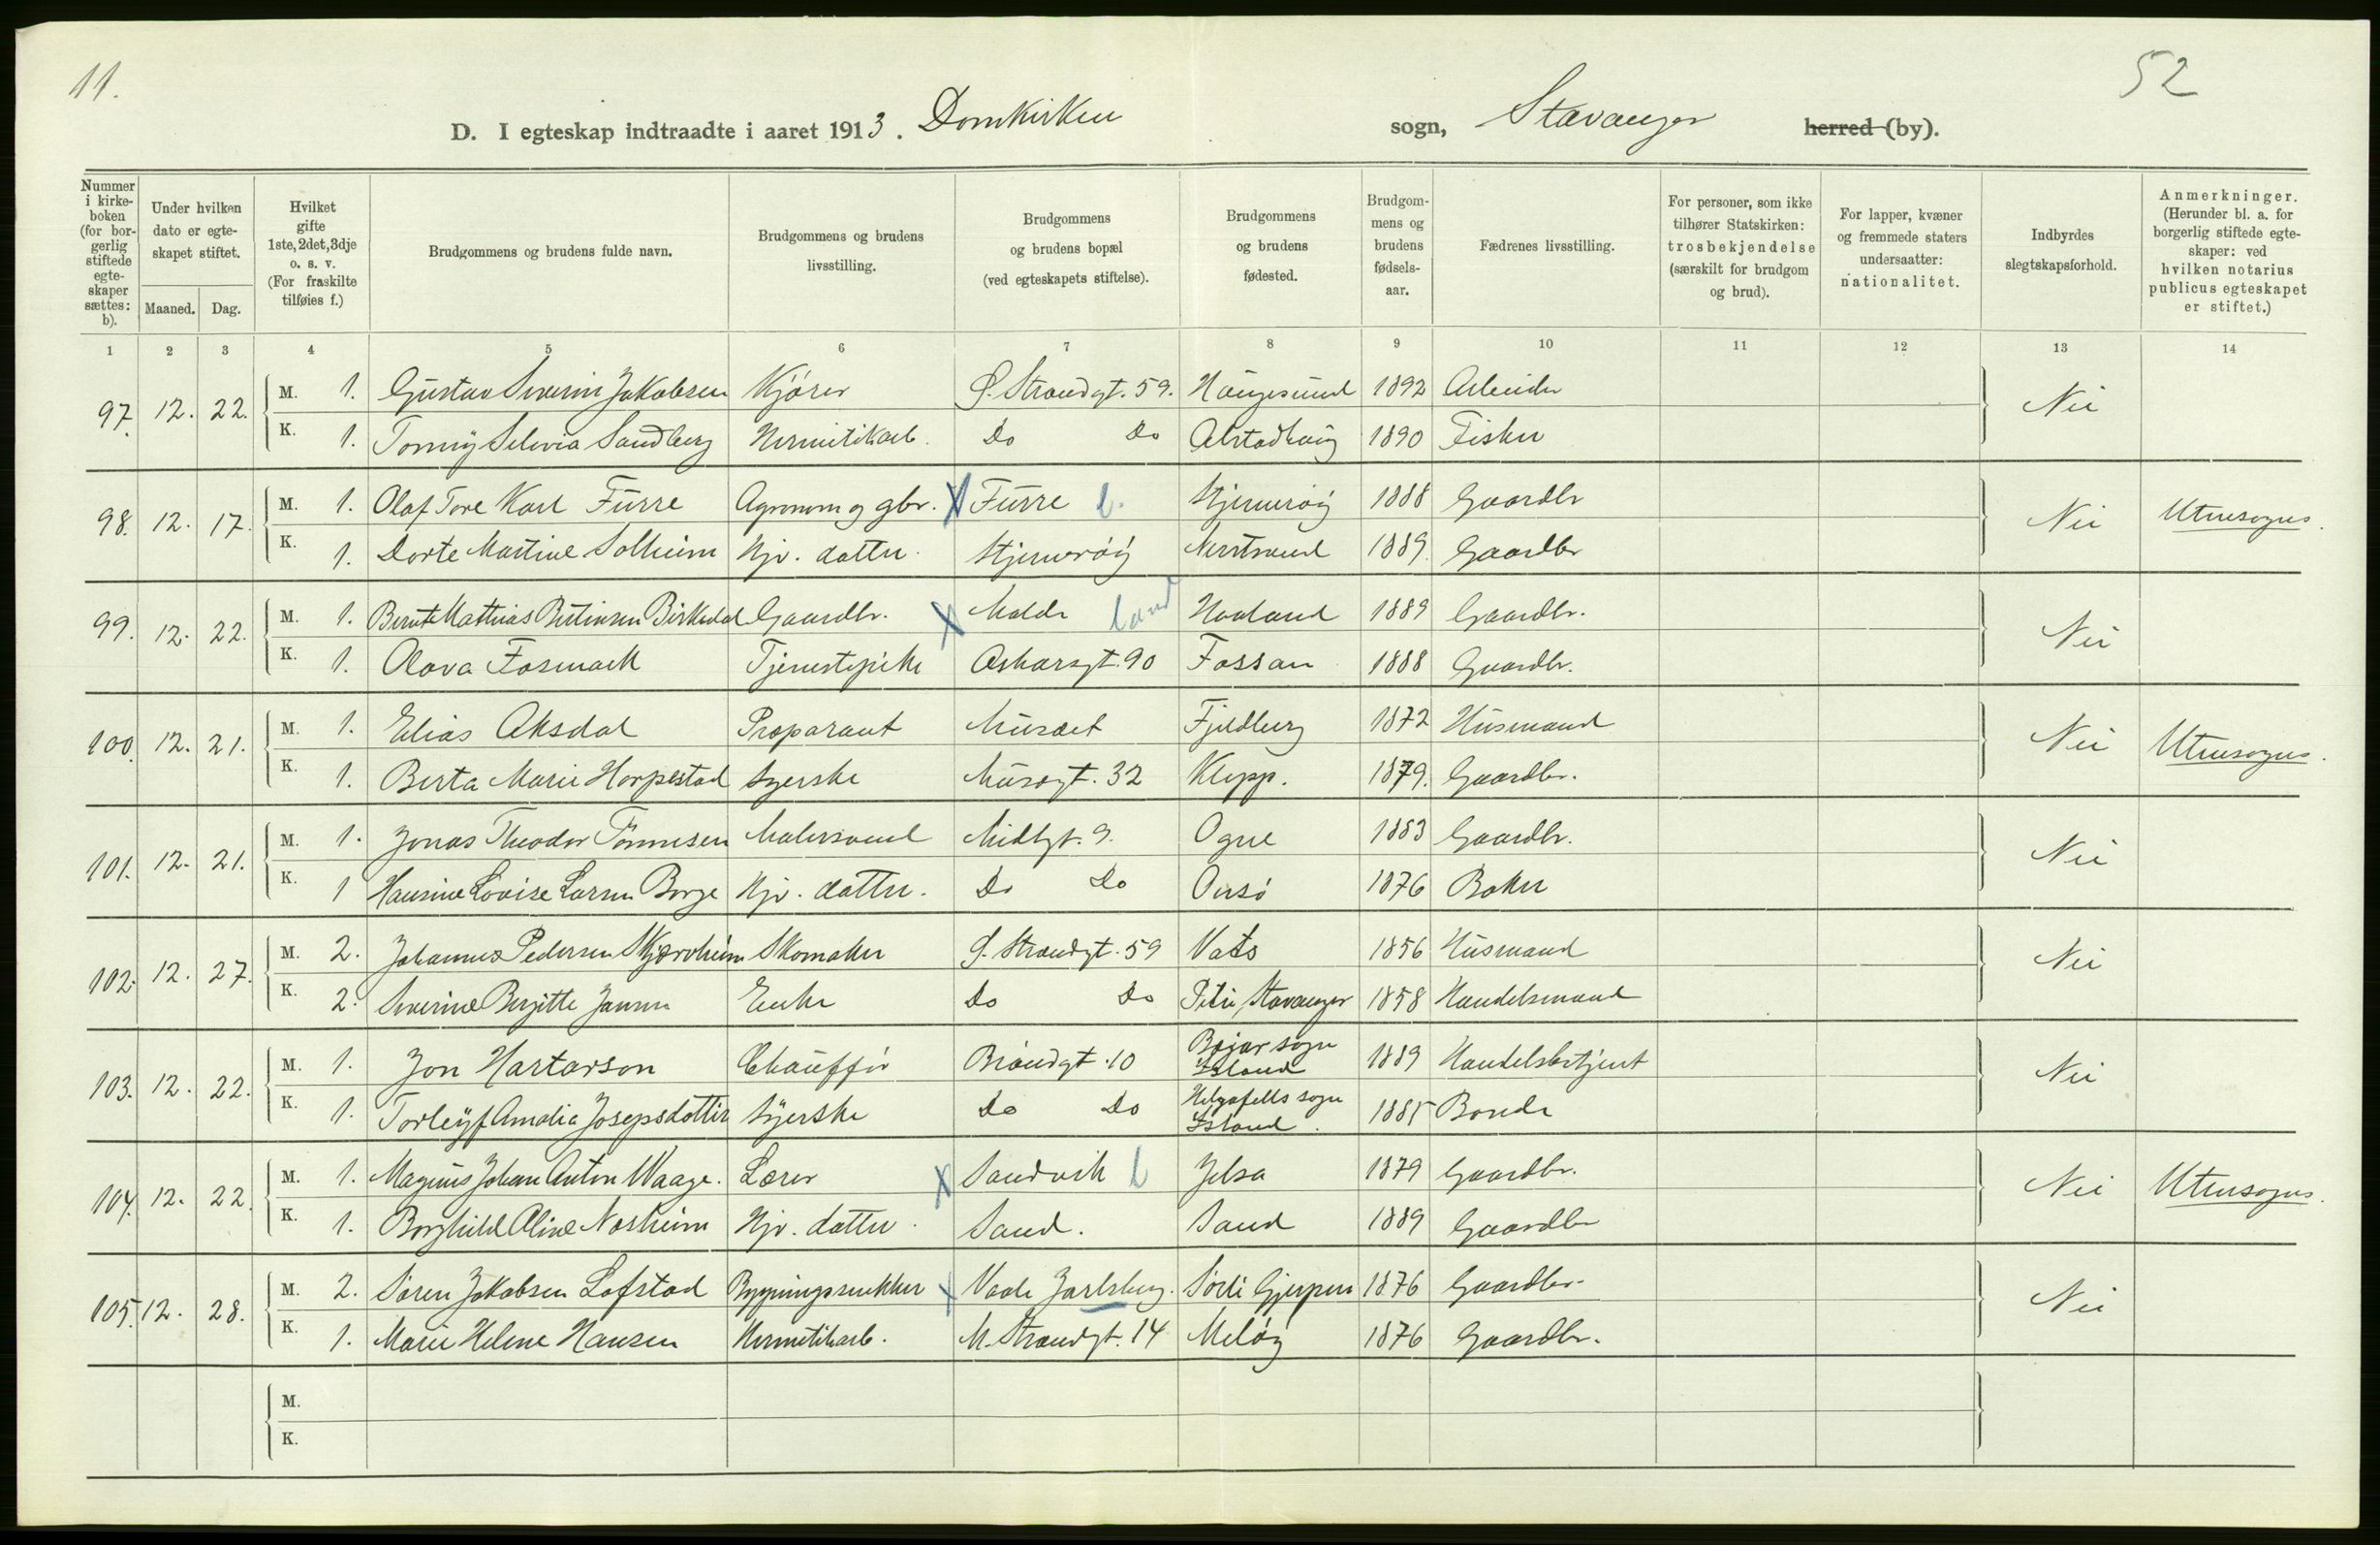 11.
52
D. I egteskap indtraadte i aaret 1913. Domkirken sogn, Stavanger herred (by).
Nummer i kirkeboken (for borgerlig stiftede egteskaper sættes: b).
Under hvilken dato er egteskapet stiftet.
Maaned. Dag.
Hvilket gifte 1ste, 2det, 3dje o. s. v. (For fraskilte tilføies f.)
Brudgommens og brudens fulde navn.
Brudgommens og brudens livsstilling.
Brudgommens og brudens bopæl (ved egteskapets stiftelse).
Brudgommens og brudens fødested.
Brudgommens og brudens fødselsaar.
Fædrenes livsstilling.
For personer, som ikke tilhører Statskirken: trosbekjendelse (særskilt for brudgom og brud).
For lapper, kvæner og fremmede staters undersaatter: nationalitet.
Indbyrdes slegtskapsforhold.
Anmerkninger. (Herunder bl. a. for borgerlig stiftede egteskaper: ved hvilken notarius publicus egteskapet er stiftet.)
1 2 3 4 5 6 7 8 9 10 11 12 13 14
97. 12. 22. M. 1. Gustav Severin Jakobsen Kjører S. Strandgt. 59. Haugesund 1892 Arbeider Nei
K. 1. Tomny Selevia Sandberg Hermetikarb. Do Do Alstadhaug 1890 Fisker
98. 12. 17. M. 1. Olaf Tore Karl Furre Agronom og gbr. X Furre l. Stjernerøy 1888 Gaardbr Nei Utensogns.
K. 1. Dorte Martine Solheim Hjv. datter. Stjernerøy Nerstrand 1889. Gaardbr
99. 12. 22. M. 1. Bernt Mathias Birkedal Gaardbr. X Malde land Haaland 1889 Gaardbr. Nei
K. 1. Olava Fosmark Tjenestepike Askarsgt. 90 Fossan 1888 Gaardbr.
100. 12. 21. M. 1. Elias Aksdal Preparant Museet Fjeldberg 1872 Husmand Nei Utensogns.
K. 1. Berta Marie Horpestad Syerske Musegt. 32 Klepp. 1879. Gaardbr.
101. 12. 21. M. 1. Jonas Theodor Tönnesen Malersvend Midtgt. 9. Ogne 1883 Gaardbr. Nei
K. 1 Hansine Lovise Larsen Borge Hjv. datter. Do Do Onsö 1876 Baker
102. 12. 27. M. 2. Johannes Pedersen Skjærvheim Skomaker S. Strandgt. 59 Vats 1856 Husmand Nei
K. 2. Severine Birgitte Jansen Enke Do Do Petri, Stavanger 1858 Handelsmand
103. 12. 22. M. 1. Jon Hartarson Chauffør Brandgt. 10 Bojar sogn Island 1889 Handelsbetjent Nei
K. 1. Torleyf Amalia Josepsdottir Syerske Do Do Helgafells sogn Island. 1885 Bonde
104. 12. 22. M. 1. Magnus Johan Anton Waage. Lærer X Sandvik l Jelsa 1879 Gaardbr. Nei Utensogns.
K. 1. Borghild Oline Nasheim Hjv. datter. Sand. Sand 1889 Gaardbr
105. 12. 28. M. 2. Sören Jakobsen Lofstad Bygningssnekker X Vaale Jarlsberg. Sörli Gjerpen 1876 Gaardbr. Nei
K. 1. Marie Helene Hansen Hermetikarb. N. Strandgt. 14 Meløy 1876 Gaardbr.
M.
K.